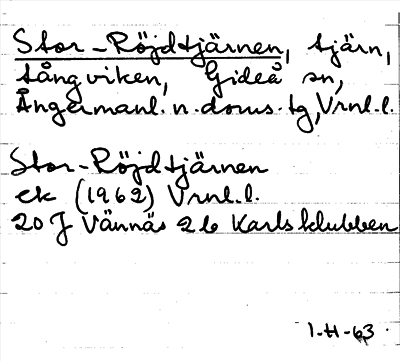 Stor-Röjdtjärnen, tjärn,
Långviken, Gideå sn,
Ångermanl. n. doms. tg, Vrnl.l.
Stor-Röjdtjärnen
ek (1962) Vrnl.l.
20 J Vännäs 2 b Karlsklubben
1-H-63